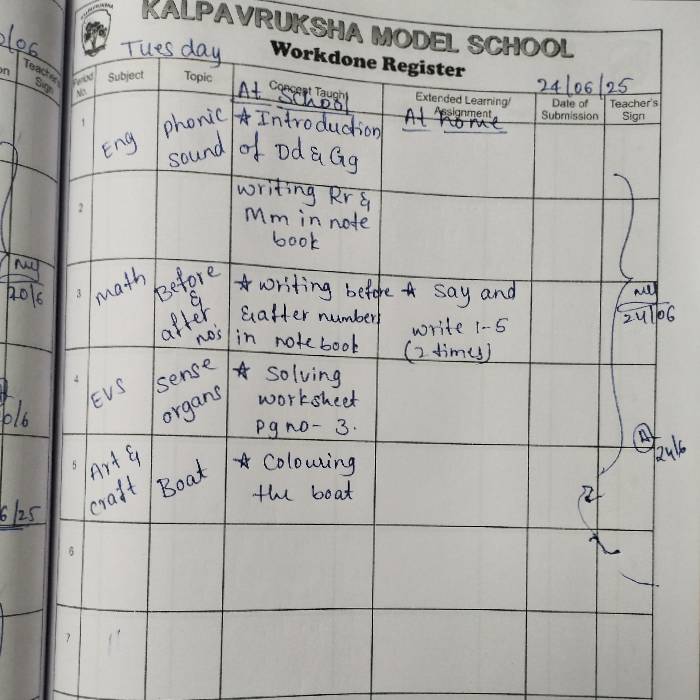 KALPAVRUKSHA MODEL SCHOOL
Tuesday
Workdone Register
24/06/25
Period No.
Subject
Topic
Concept Taught
At School
Extended Learning/ Assignment
At home
Date of Submission
Teacher's Sign
1
Eng
phonic
sound
* Introduction
of Dd & Gg
2
writing Rr &
Mm in note
book
3
math
Before
&
after
no's
* writing before
& after numbers
in notebook
* Say and
write 1-5
(2 times)
24/06
4
EVS
sense
organs
* Solving
worksheet
pg no- 3.
24/6
5
Art &
craft
Boat
* Colouring
the boat
6
7
/06
Teacher's
Sign
20/6
0/6
6/25